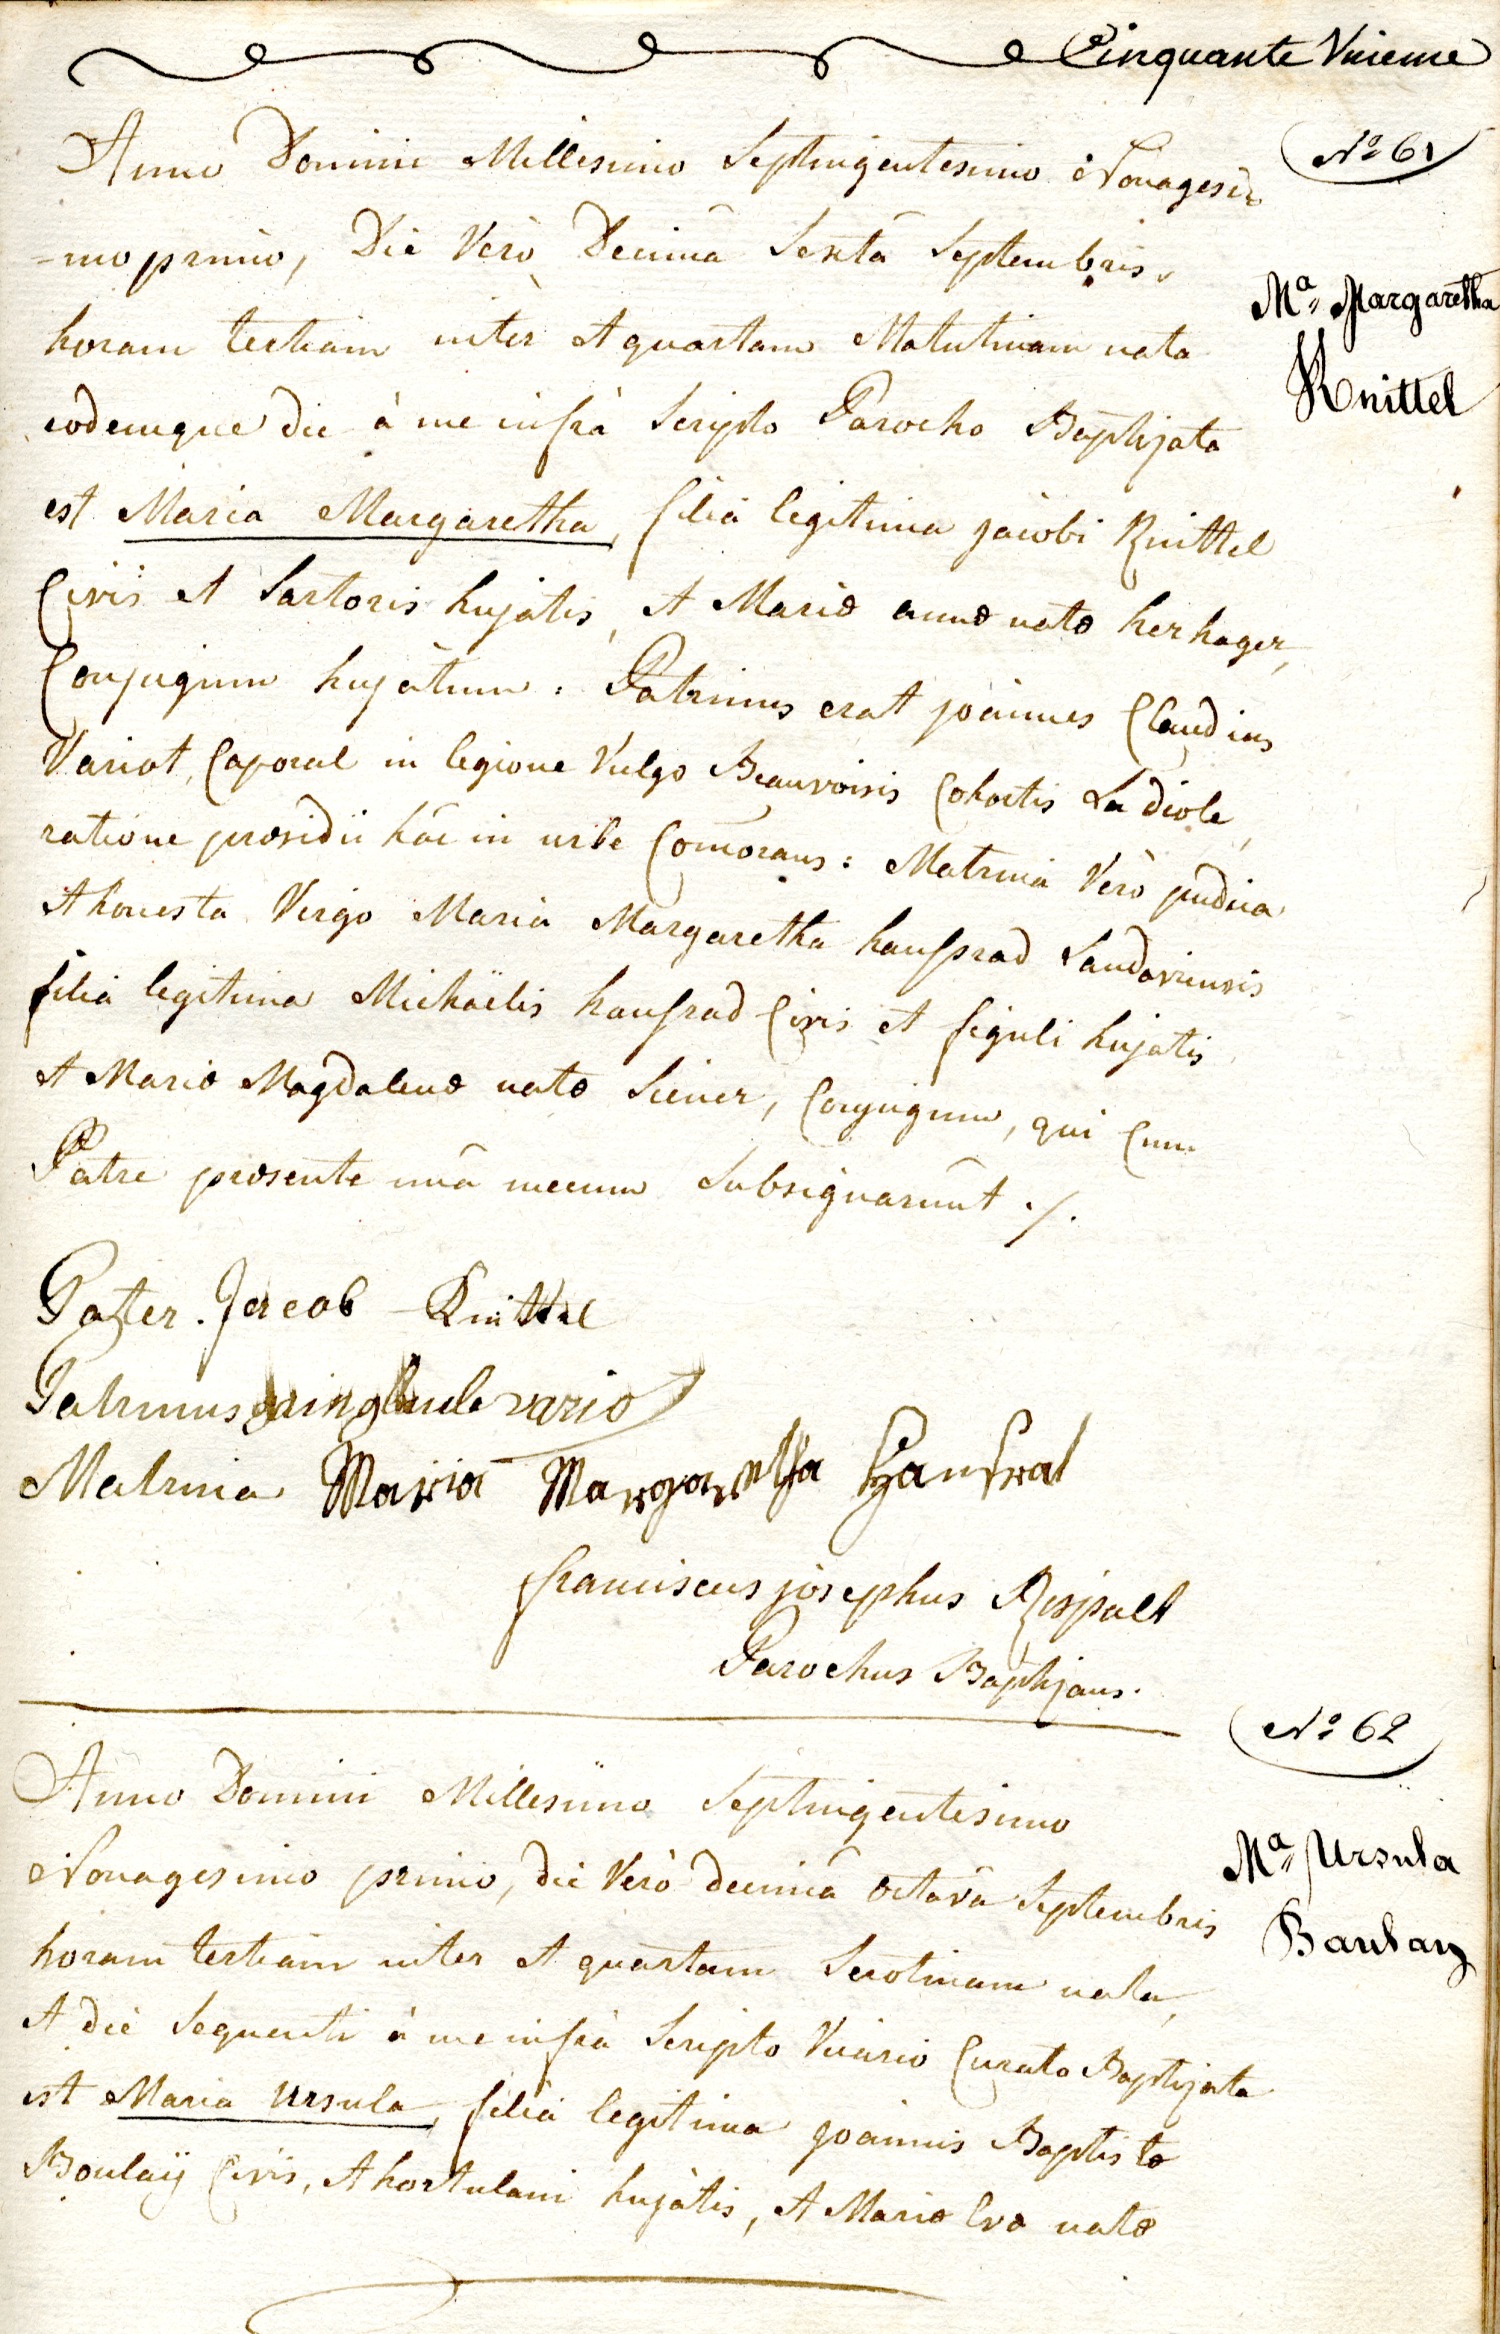 Cinquante Unieme
Nº 61
Anno Domini Millesimo Septingentesimo Nonagesi-
-mo primo, Die Verò Decimâ Sextâ Septembris,
horam tertiam inter et quartam Matutinam nata
eodemque die à me infrà Scripto Parocho Baptizata
est Maria Margaretha, filia legitima jacobi Knittel
Civis et Sartoris hujatis, et Mariæ annæ natæ herhager,
Conjugum hujatum: Patrinus erat joannes Claudius
Variot, Caporal in legione Vulgo Beauvoisis Cohortis Ladiole,
ratione præsidii hâc in urbe Com̃orans: Matrina Verò pudica
et honesta Virgo Maria Margaretha haufrad Landaviensis
filia legitima Michaëlis haufrad Civis et figuli hujatis
et Mariæ Magdalenæ natæ Siener, Conjugum, qui Cum
Patre præsente unâ mecum Subsignarunt ./.
Mª Margaretha
Knittel
Pater. Jacob Knittel
Patrinus variot
Matrina Maria Margaretha Haufrat
franciscus josephus Rispalt
Parochus Baptizans.
Nº 62
Anno Domini Millesimo Septingentesimo
Nonagesimo primo, die Verò decimâ octavâ Septembris
horam tertiam inter et quartam Serotinam nata,
et die Sequenti à me infrà Scripto Vicario Curato Baptizata
est Maria Ursula, filia legitima joannis Baptistæ
Boulaÿ Civis, et hortulani hujatis, et Mariæ Evæ natæ
Mª Ursula
Boulay